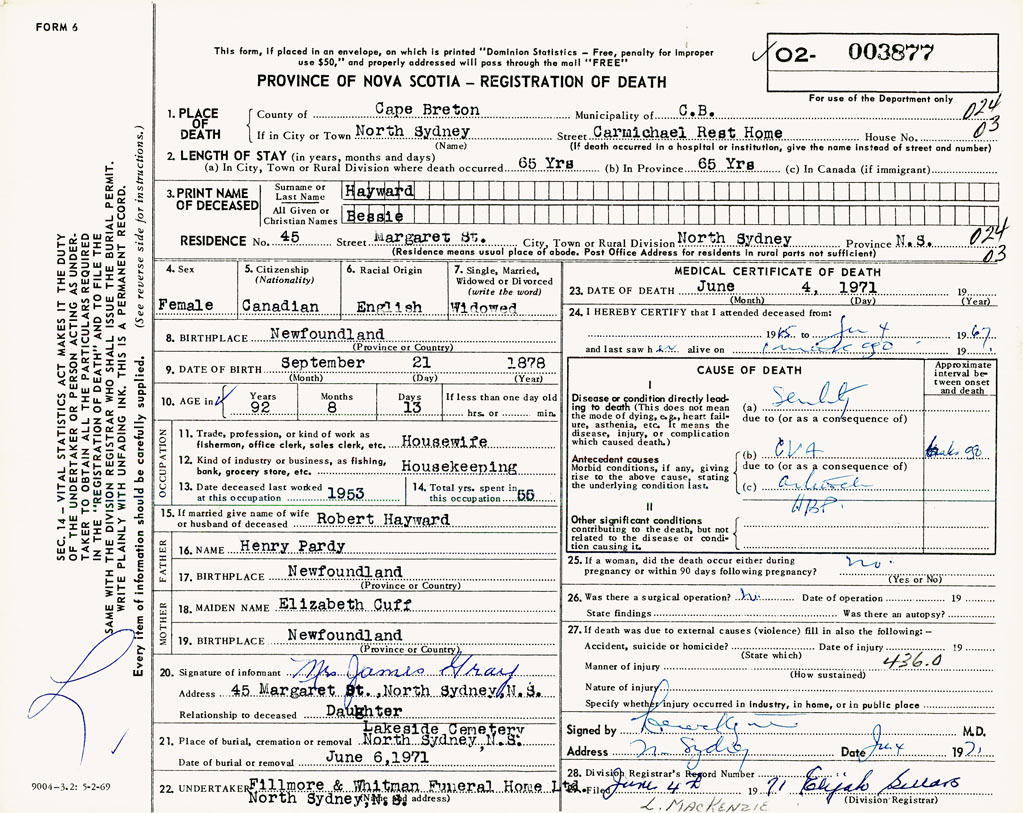 FORM 6
This form, if placed in an envelope, on which is printed "Dominion Statistics – Free, penalty for improper
use $50," and properly addressed will pass through the mail "FREE"
PROVINCE OF NOVA SCOTIA – REGISTRATION OF DEATH
O2- 003877
For use of the Department only
1. PLACE OF DEATH
County of Cape Breton Municipality of C.B. 024
If in City or Town North Sydney Street Carmichael Rest Home House No. 03
(Name) (If death occurred in a hospital or institution, give the name instead of street and number)
2. LENGTH OF STAY (in years, months and days)
(a) In City, Town or Rural Division where death occurred 65 Yrs (b) In Province 65 Yrs (c) In Canada (if immigrant)
3. PRINT NAME OF DECEASED
Surname or Last Name Hayward
All Given or Christian Names Bessie
RESIDENCE No. 45 Street Margaret St. City, Town or Rural Division North Sydney Province N.S. 024
(Residence means usual place of abode. Post Office Address for residents in rural parts not sufficient) 03
4. Sex
Female
5. Citizenship
(Nationality)
Canadian
6. Racial Origin
English
7. Single, Married,
Widowed or Divorced
(write the word)
Widowed
8. BIRTHPLACE Newfoundland
(Province or Country)
9. DATE OF BIRTH September 21 1878
(Month) (Day) (Year)
10. AGE in
Years Months Days If less than one day old
92 8 13 hrs. or min.
OCCUPATION
11. Trade, profession, or kind of work as
fisherman, office clerk, sales clerk, etc. Housewife
12. Kind of industry or business, as fishing,
bank, grocery store, etc. Housekeeping
13. Date deceased last worked
at this occupation 1953
14. Total yrs. spent in
this occupation 55
15. If married give name of wife
or husband of deceased Robert Hayward
FATHER
16. NAME Henry Pardy
17. BIRTHPLACE Newfoundland
(Province or Country)
MOTHER
18. MAIDEN NAME Elizabeth Cuff
19. BIRTHPLACE Newfoundland
(Province or Country)
20. Signature of informant Mrs James Gray
Address 45 Margaret St., North Sydney, N.S.
Relationship to deceased Daughter
Lakeside Cemetery
21. Place of burial, cremation or removal North Sydney, N.S.
Date of burial or removal June 6, 1971
22. UNDERTAKER Fillmore & Whitman Funeral Home Ltd.
North Sydney, N.S. (Name and address)
MEDICAL CERTIFICATE OF DEATH
23. DATE OF DEATH June 4, 1971 19
(Month) (Day) (Year)
24. I HEREBY CERTIFY that I attended deceased from:
1965 to Jun 4 1967
and last saw her alive on 19
CAUSE OF DEATH
Approximate
interval be-
tween onset
and death
I
Disease or condition directly lead-
ing to death (This does not mean
the mode of dying, e.g., heart fail-
ure, asthenia, etc. It means the
disease, injury, or complication
which caused death.)
(a) Senility
due to (or as a consequence of)
Antecedent causes
Morbid conditions, if any, giving
rise to the above cause, stating
the underlying condition last.
(b) CVA
due to (or as a consequence of)
(c)
HBP.
II
Other significant conditions
contributing to the death, but not
related to the disease or condi-
tion causing it.
25. If a woman, did the death occur either during
pregnancy or within 90 days following pregnancy? no.
(Yes or No)
26. Was there a surgical operation? No Date of operation 19
State findings Was there an autopsy?
27. If death was due to external causes (violence) fill in also the following: –
Accident, suicide or homicide? Date of injury 19
(State which)
Manner of injury 436.0
(How sustained)
Nature of injury
Specify whether injury occurred in industry, in home, or in public place
Signed by M.D.
Address N. Sydney Date Jun 4 1971
28. Division Registrar's Record Number
Filed June 4th 1971 Elijah Sellars
(Division Registrar)
L. MACKENZIE
SEC. 14 – VITAL STATISTICS ACT MAKES IT THE DUTY
OF THE UNDERTAKER OR PERSON ACTING AS UNDER-
TAKER TO OBTAIN ALL THE PARTICULARS REQUIRED
IN THE "REGISTRATION OF DEATH" AND TO FILE THE
SAME WITH THE DIVISION REGISTRAR WHO SHALL ISSUE THE BURIAL PERMIT.
WRITE PLAINLY WITH UNFADING INK. THIS IS A PERMANENT RECORD.
Every item of information should be carefully supplied. (See reverse side for instructions.)
9004-3.2: 5-2-69